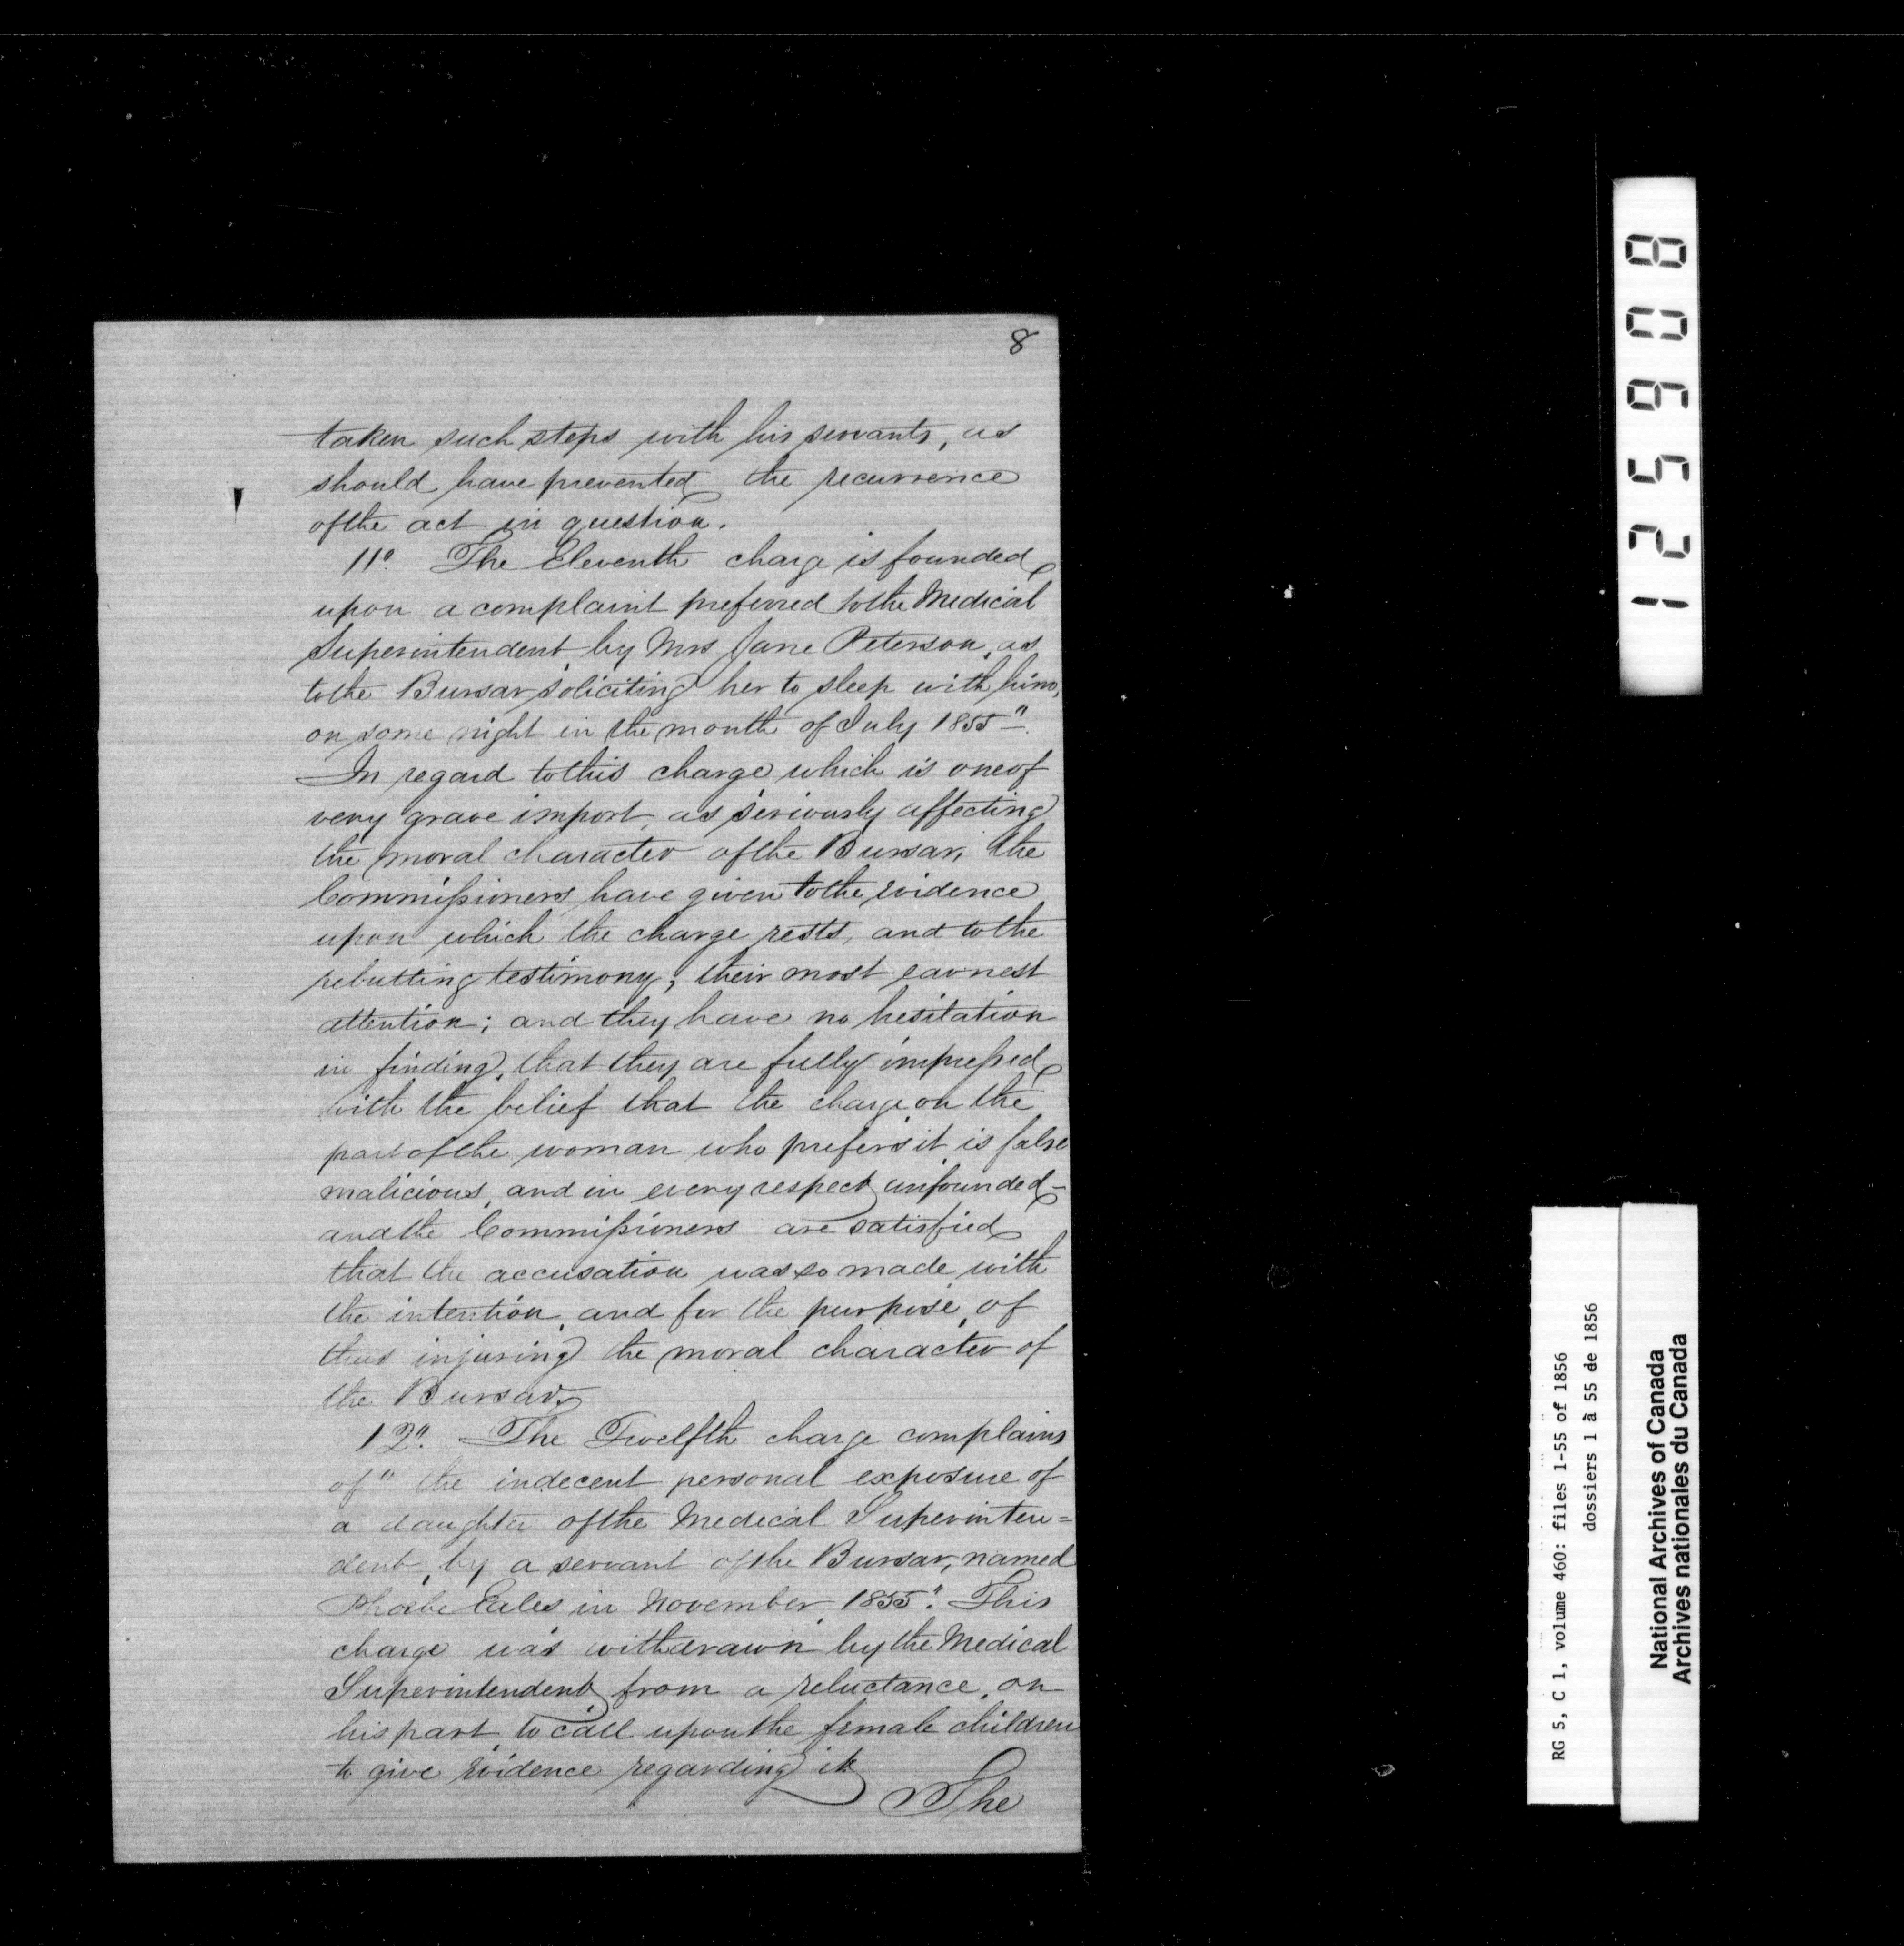 8
taken such steps with his servants, as
should have prevented the recurrence
of the act in question.
11º. The Eleventh charge is founded
upon a complaint preferred to the Medical
Superintendent, by Mrs Jane Peterson, as
to the Bursar soliciting her to sleep with him,
on some night in the month of July 1855".
In regard to this charge which is one of
very grave import, as seriously affecting
the moral character of the Bursar, the
Commissioners have given to the evidence
upon which the charge rests, and to the
rebutting testimony, their most earnest
attention; and they have no hesitation
in finding, that they are fully impressed
with the belief that the charge on the
part of the woman who prefers it, is false
malicious, and in every respect unfounded-
and the Commissioners are satisfied
that the accusation was so made with
the intention, and for the purpose, of
thus injuring the moral character of
the Bursar.
12º. The Twelfth charge complains
of " the indecent personal exposure of
a daughter of the Medical Superinten=
dent, by a servant of the Bursar, named
Phoebe Eales in November 1855". This
charge was withdrawn by the Medical
Superintendent, from a reluctance, on
his part, to call upon the female children
to give evidence regarding it.
The
125908
RG 5, C 1, volume 460: files 1-55 of 1856
dossiers 1 à 55 de 1856
National Archives of Canada
Archives nationales du Canada